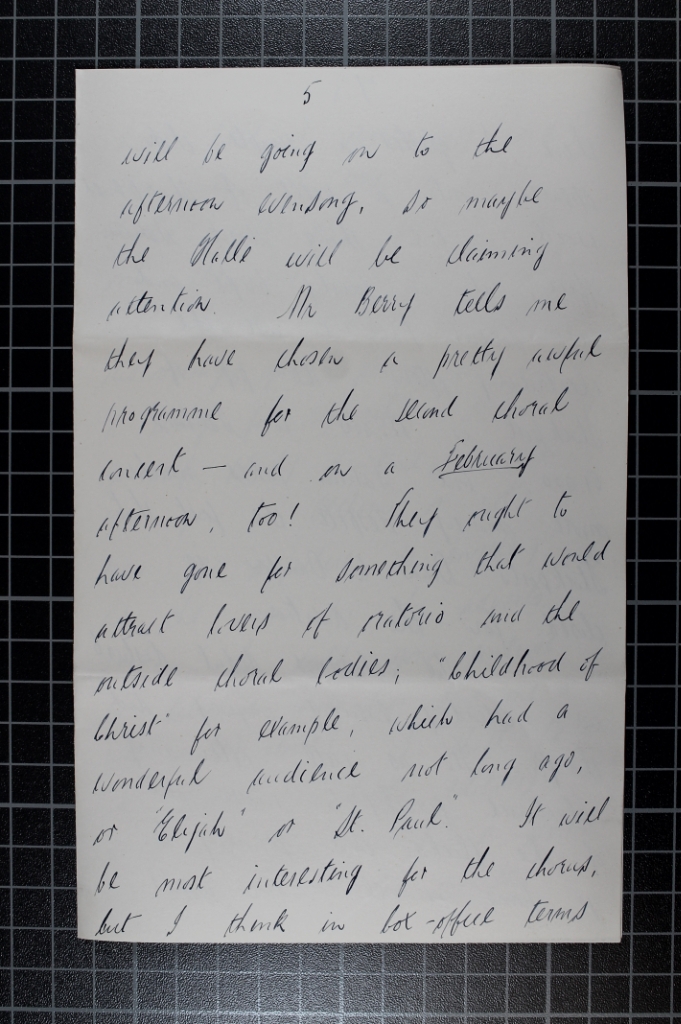 5
will be going on to the
afternoon evensong, so maybe
the Hallé will be claiming
attention. Mr Berry tells me
they have chosen a pretty awful
programme for the second choral
concert — and on a February
afternoon, too! They ought to
have gone for something that would
attract lovers of oratorio and the
outside choral bodies; "Childhood of
Christ" for example, which had a
wonderful audience not long ago,
or "Elijah" or "St. Paul". It will
be most interesting for the chorus,
but I think in box-office terms